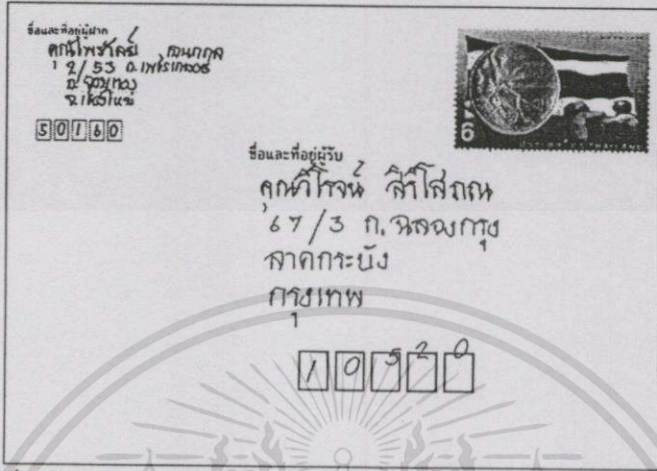 ชื่อและที่อยู่ผู้ฝาก
คุณไพรวัลย์
12/53 ถ.เพชรเกษม
อ.จอมทอง
จ.เชียงใหม่
50160
6
ประเทศไทย THAILAND
ชื่อและที่อยู่ผู้รับ
คุณวิโรจน์ สิริโสภณ
67/3 ถ.ฉลองกรุง
ลาดกระบัง
กรุงเทพ
10520